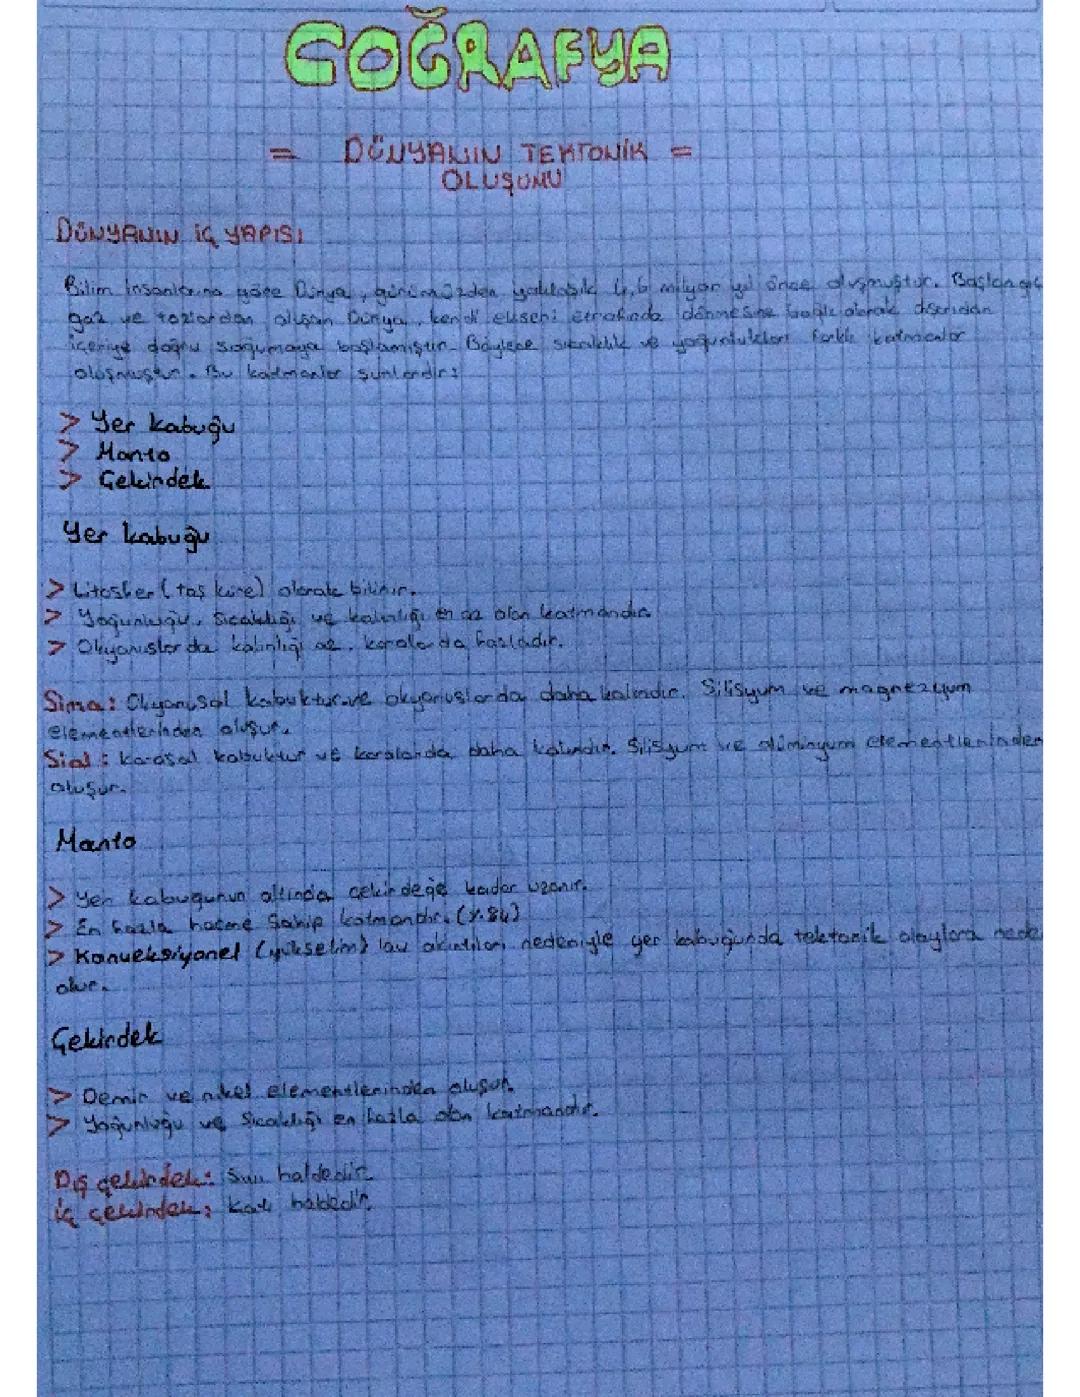 COĞRAFYA
= DÜNYANIN TEKTONİK =
OLUŞUMU
DÜNYANIN İÇ YAPISI
Bilim insanlarına göre Dünya, günümüzden yaklaşık 4,6 milyar yıl önce oluşmuştur. Başlangıç
gaz ve tozlardan oluşan Dünya, kendi ekseni etrafında dönmesine bağlı olarak dışarıdan
içeriye doğru soğumaya başlamıştır. Böylece sıcaklık ve yoğunlukları farklı katmanlar
oluşmuştur. Bu katmanlar şunlardır:
> Yer kabuğu
> Manto
> Çekirdek
Yer kabuğu
> Litosfer (taş küre) olarak bilinir.
> Yoğunluğu, Sıcaklığı ve kalınlığı en az olan katmandır.
> Okyanuslarda kalınlığı az, karalarda fazladır.
Sima: Okyanusal kabuktur ve okyanuslarda daha kalındır. Silisyum ve magnezyum
elementlerinden oluşur.
Sial: karasal kabuktur ve karalarda daha kalındır. Silisyum ve alüminyum elementlerinden
oluşur.
Manto
> Yer kabuğunun altında çekirdeğe kadar uzanır.
> En fazla hacme sahip katmandır. (%84)
> Konveksiyonel (yükselim) lav akıntıları nedeniyle yer kabuğunda tektonik olaylara nede
olur.
Çekirdek
> Demir ve nikel elementlerinden oluşur.
> Yoğunluğu ve Sıcaklığı en fazla olan katmandır.
Dış çekirdek: Sıvı haldedir.
İç çekirdek: Katı haldedir.